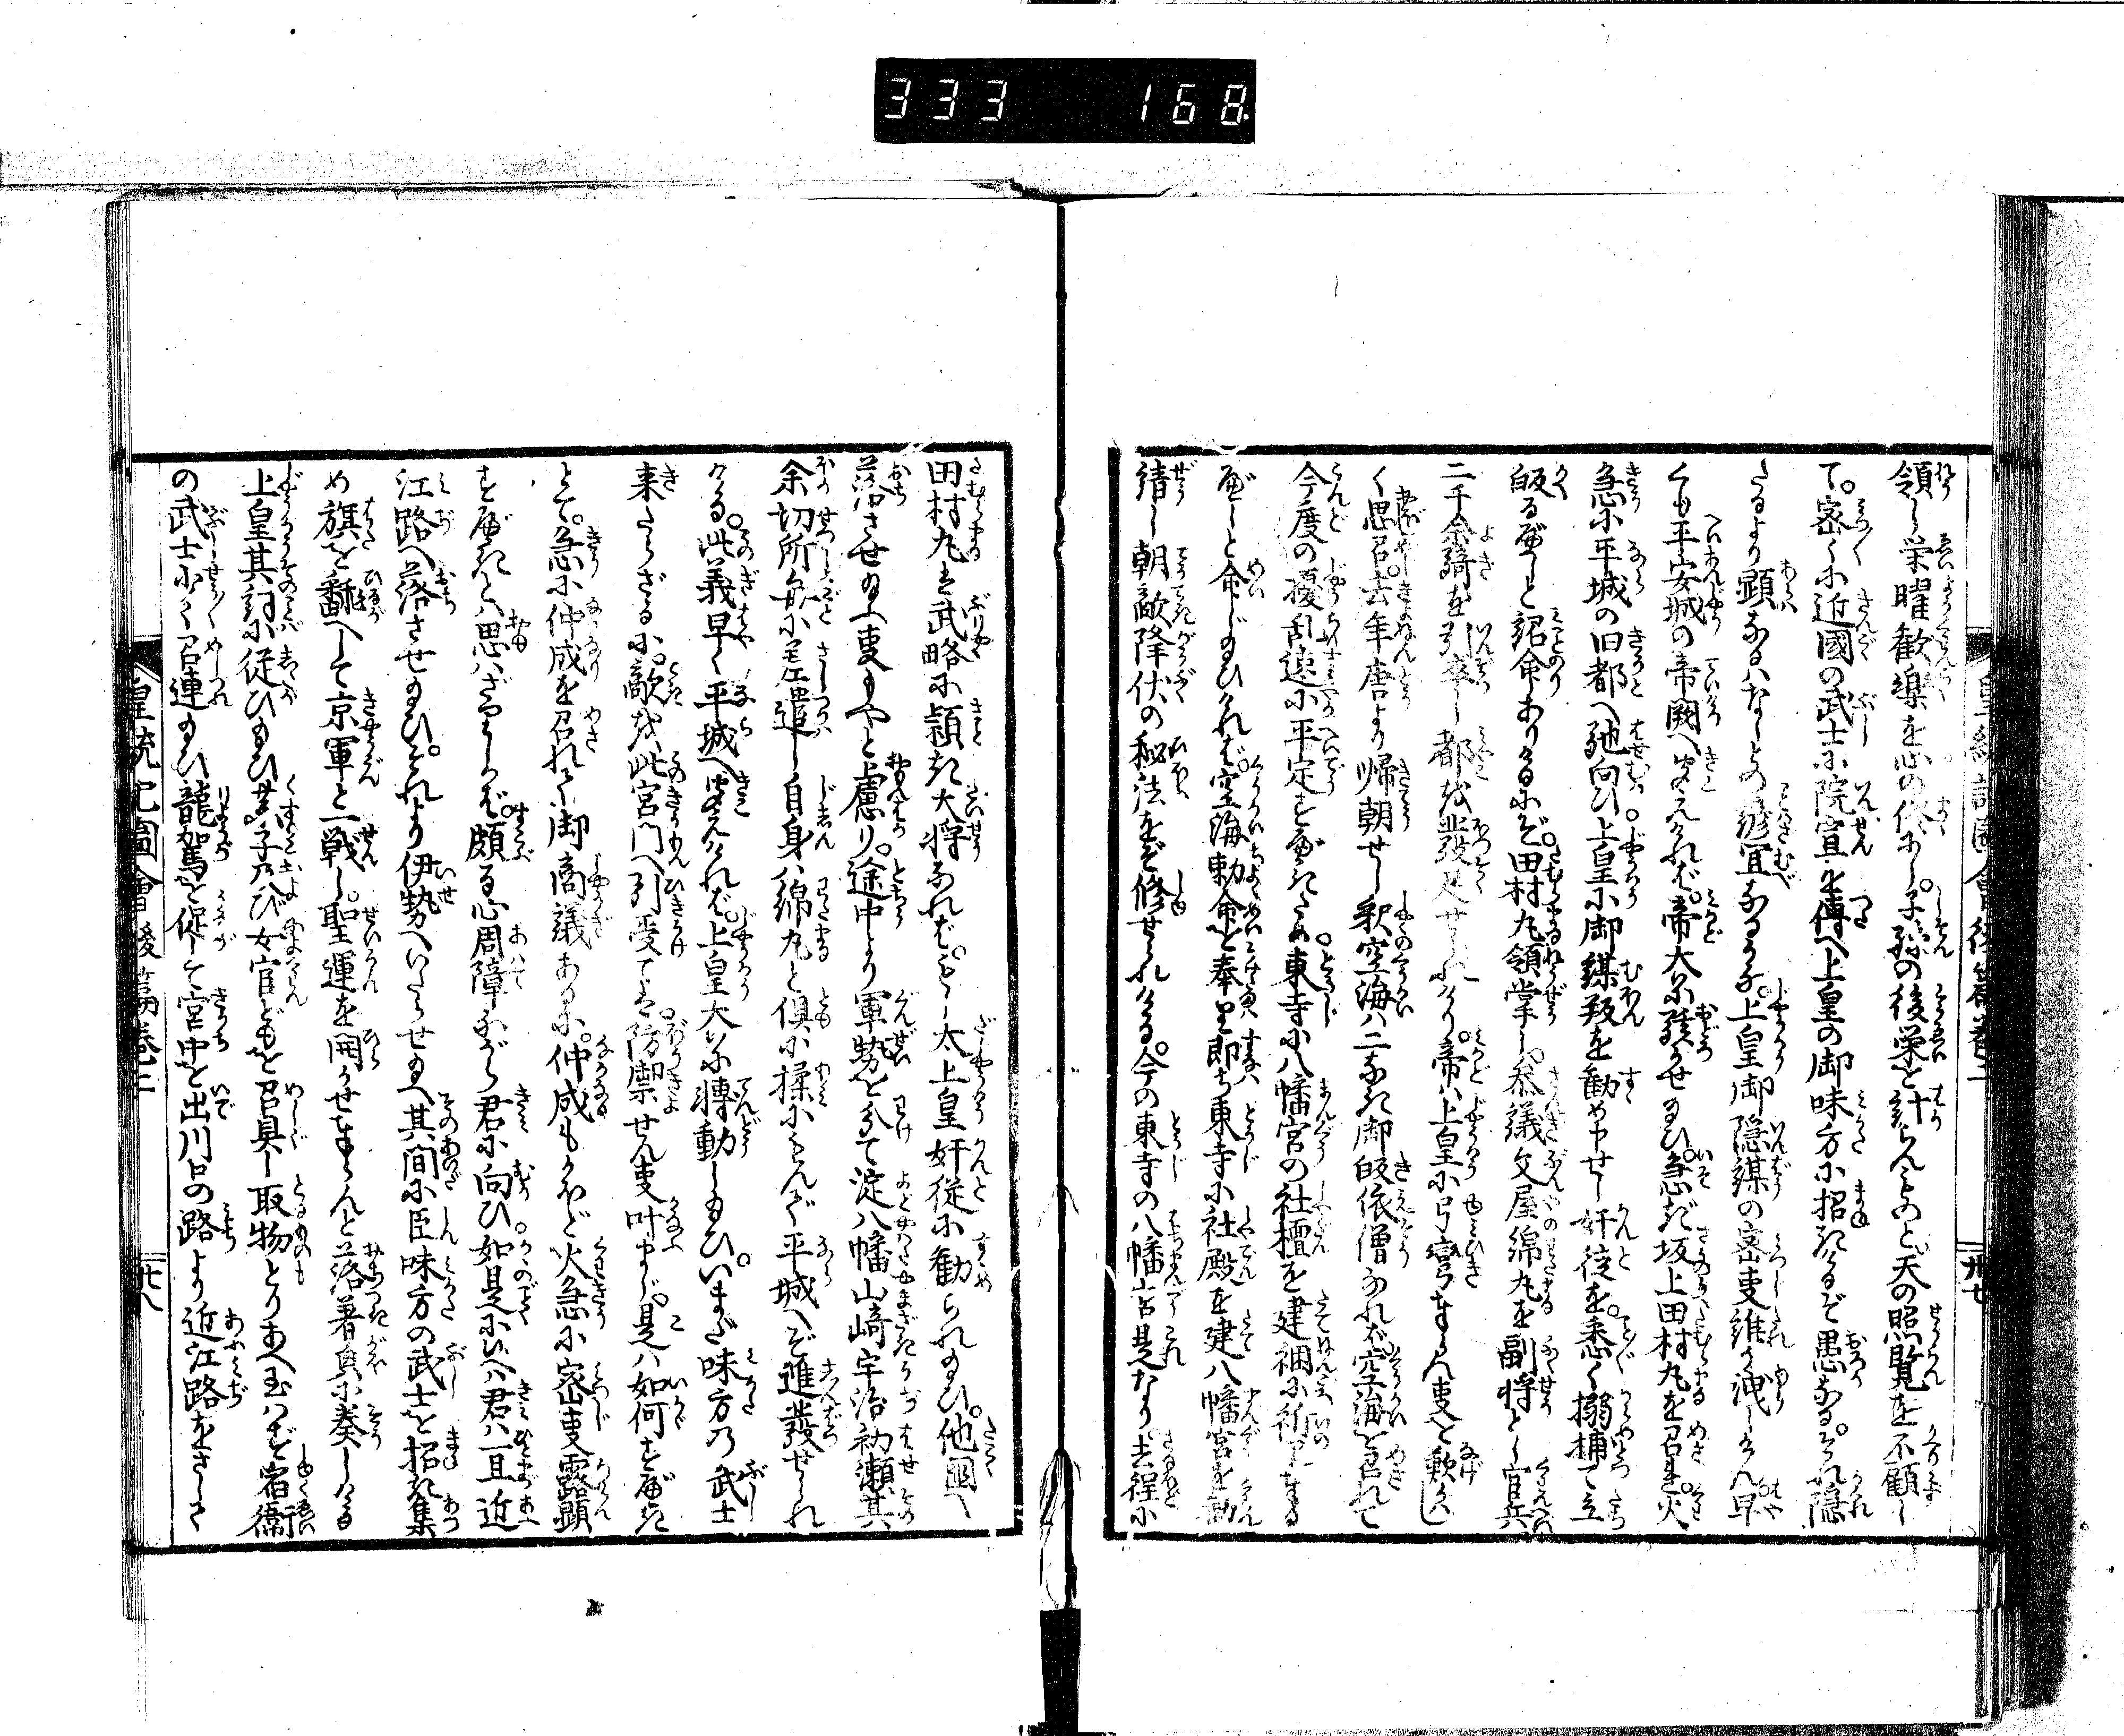 333 168
皇統記圖會後篇巻二 卅七
領し栄曜歓楽を心の侭にし。子孫の後栄を計らんものと天の照覧を不顧し
て。密々に近國の武士に院宣を傳へ上皇の御味方に招きけるぞ愚なる。それ隠
たるより顕るゝはなしとの諺宜なるかな。上皇御隠謀の密事維か洩しけん早
くも平安城の帝闕へ聞えければ。帝大に驚かせ玉ひ。急ぎ坂上田村丸を召れ。火
急に平城の旧都へ馳向ひ。上皇に御謀叛を勧め申せし奸徒を。悉く搦捕て立
皈るべしと詔命ありけるにぞ。田村丸領掌し。参議文屋綿丸を副将とし官兵
二千余騎を引率し都を發足せられけり。帝は上皇に弓彎玉はん事を歎かし
く思召。去年唐より帰朝せし釈空海は二なき御皈依僧なれば。空海を召れて
今度の擾乱速に平定すべきため。東寺に八幡宮の社檀を建祠に祈り玉はる
べしと命じ玉ひければ。空海勅命を奉り即ち東寺に社殿を建八幡宮を勧
請し朝敵降伏の秘法をぞ修せられける。今の東寺の八幡宮是なり。去程に
田村丸は武略に頴き大将なれば。もし太上皇奸徒に勧られ玉ひ。他國へ
落させ玉ふ事もやと慮り。途中より軍勢を分て淀八幡山崎宇治初瀬其
余切所無に差遣し自身は綿丸と倶に揉にもんで平城へぞ進發せられ
ける。此義早く平城へ聞えければ。上皇大いに轉動し玉ひ。いまだ味方の武士
来らざるに。敵を此宮門へ引受ては防禦せん事叶まじ。是は如何すべき
とて。急に仲成を召れて御商議あるに。仲成もかほど火急に密事露顕
すべきとは思はざりしかば。頗る心周障ながら君に向ひ。如是に候へば君は一旦近
江路へ落させ玉ひ。それより伊勢へいたらせ玉へ其間に臣味方の武士を招き集
め旗を飜へして京軍と一戦し。聖運を開かせ申さんと落着顔に奏しける
上皇其詞に従ひ玉ひ薬子及び女官どもを召具し取物とりあへ玉はず宿衛
の武士少々召連玉ひ龍駕を促して宮中を出川口の路より近江路をさして
皇統記圖會後篇巻二 卅八